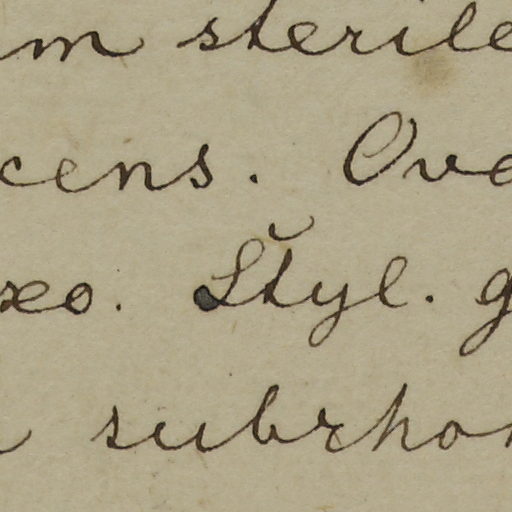 m sterile
cens. Ova
xo. Styl. g
subrhom